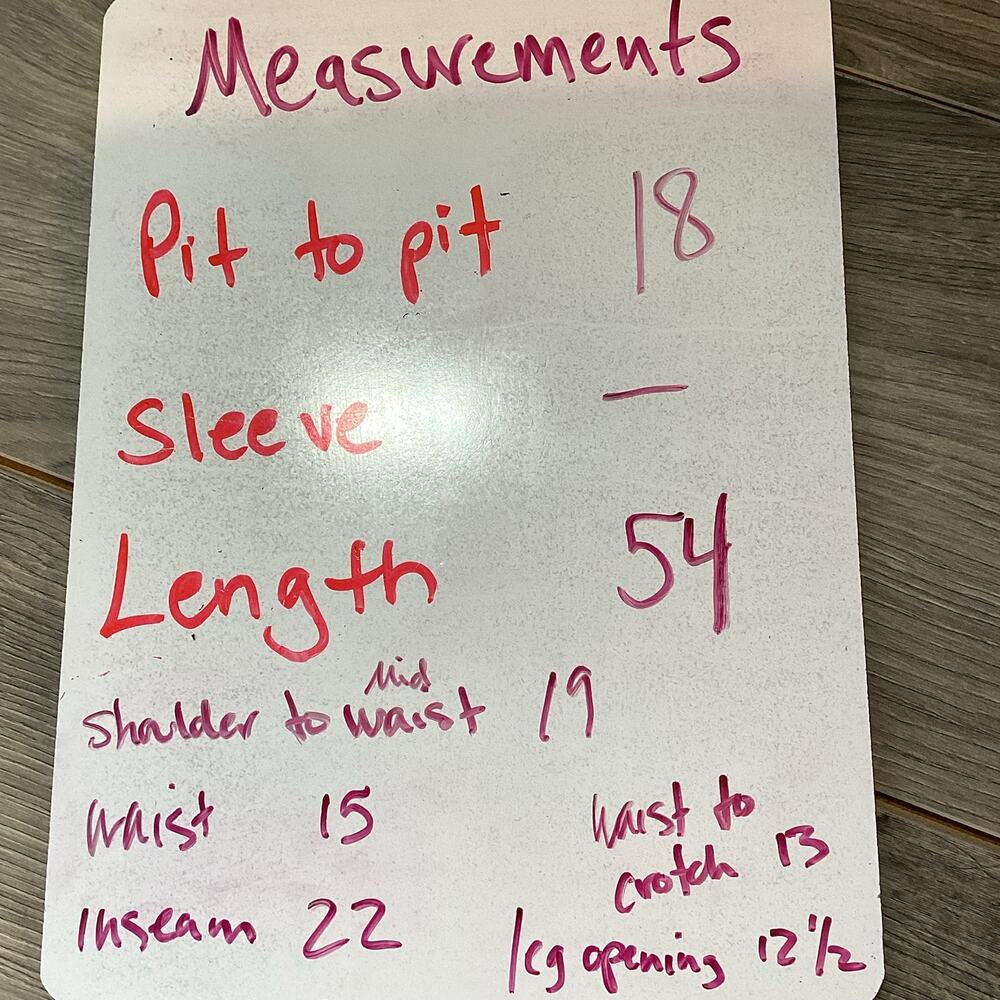 Measurements
Pit to pit 18
Sleeve —
Length 54
Mid
Shoulder to waist 19
waist 15
waist to
crotch 13
Inseam 22
leg opening 12 1/2